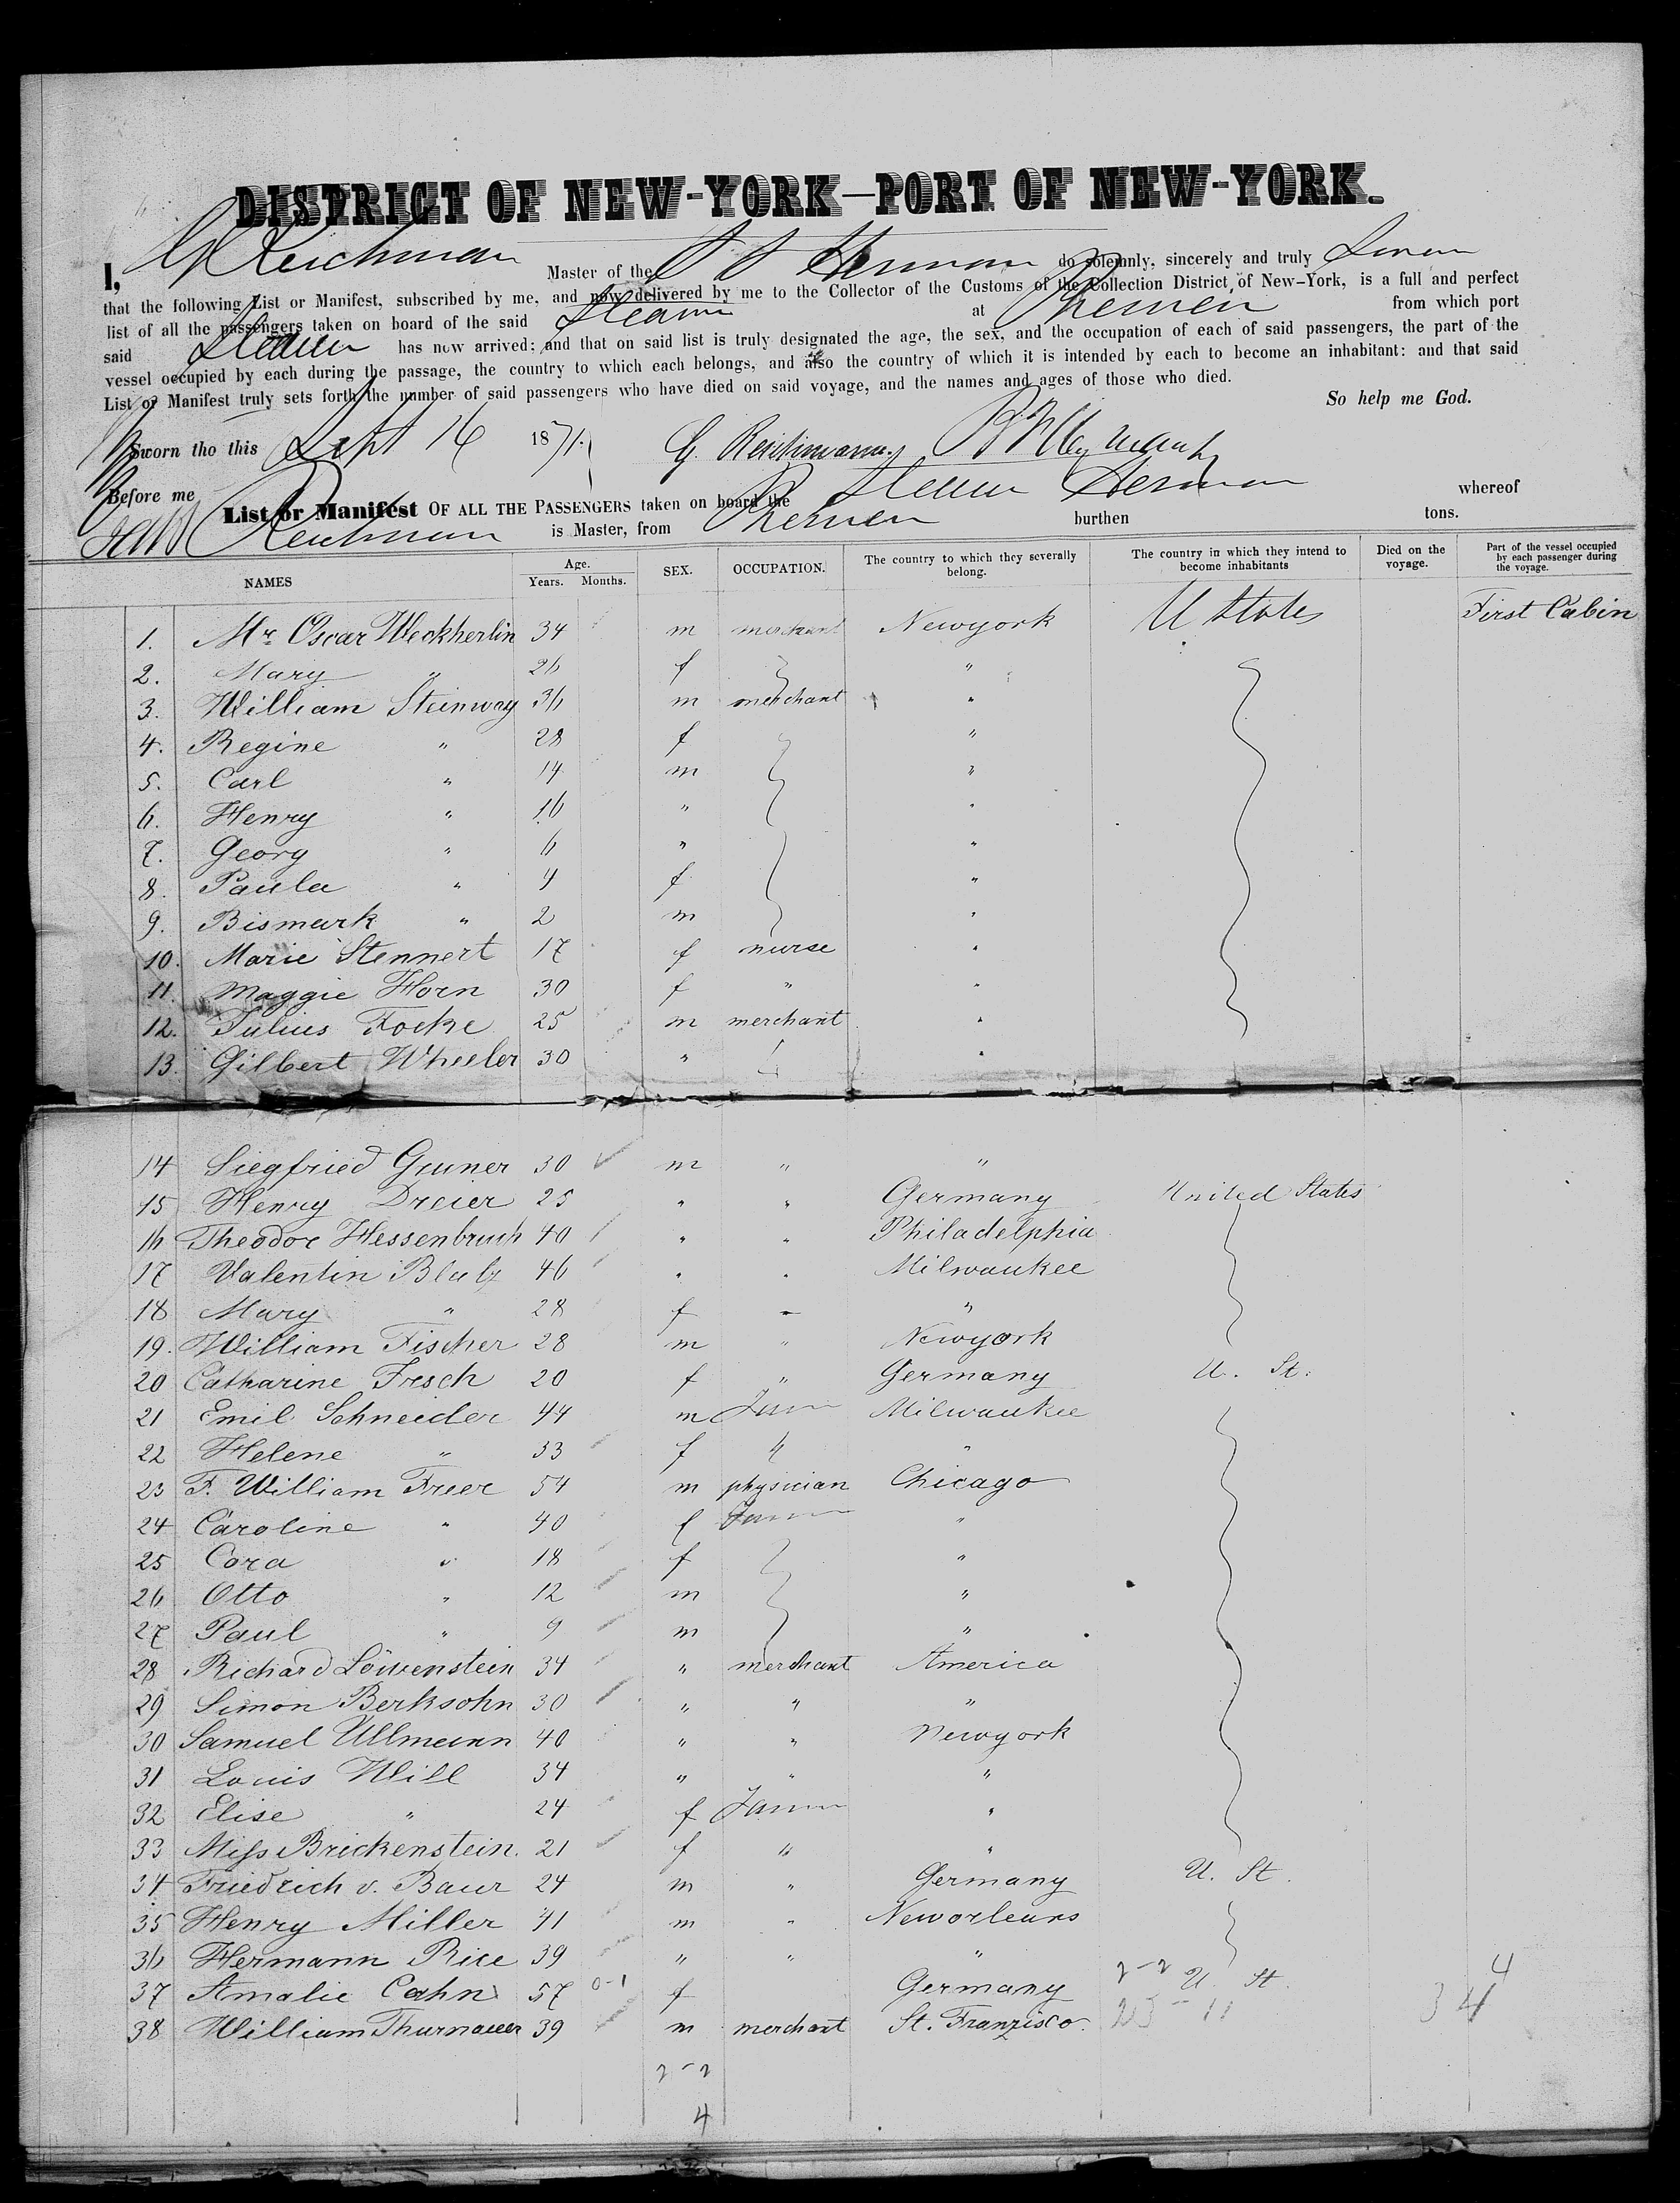 DISTRICT OF NEW-YORK—PORT OF NEW-YORK.
I, G Reichman Master of the S S Herman do solemnly, sincerely and truly Swear
that the following List or Manifest, subscribed by me, and now delivered by me to the Collector of the Customs of the Collection District of New-York, is a full and perfect
list of all the passengers taken on board of the said Steamer at Bremen from which port
said Steamer has now arrived; and that on said list is truly designated the age, the sex, and the occupation of each of said passengers, the part of the
vessel occupied by each during the passage, the country to which each belongs, and also the country of which it is intended by each to become an inhabitant: and that said
List or Manifest truly sets forth the number of said passengers who have died on said voyage, and the names and ages of those who died.
So help me God.
Sworn tho this Sept 16 1871. G. Reichmann.
Before me
List or Manifest OF ALL THE PASSENGERS taken on board the Steamer Herman whereof
Reichman is Master, from Bremen burthen tons.
NAMES Age. Years. Months. SEX. OCCUPATION. The country to which they severally belong. The country in which they intend to become inhabitants Died on the voyage. Part of the vessel occupied by each passenger during the voyage.
1. Mr. Oscar Weckherlin 34 m merchant Newyork U States First Cabin
2. Mary " 26 f "
3. William Steinway 36 m merchant "
4. Regine " 28 f "
5. Carl " 14 m "
6. Henry " 16 " "
7. Georg " 6 " "
8. Paula " 4 f "
9. Bismark " 2 m "
10. Marie Stennert 17 f nurse "
11. Maggie Horn 30 f " "
12. Julius Focke 25 m merchant "
13. Gilbert Wheeler 30 " "
14 Siegfried Gruner 30 m " "
15 Henry Dreier 25 " " Germany United States
16 Theodor Hessenbruch 40 " " Philadelphia
17 Valentin Blatz 46 " " Milwaukee
18 Mary " 28 f - "
19. William Fischer 28 m " Newyork
20 Catharine Fresch 20 f " Germany U. St.
21 Emil Schneider 44 m Milwaukee
22 Helene " 33 f " "
23 F. William Freer 54 m physician Chicago
24 Caroline " 40 f "
25 Cora " 18 f "
26 Otto " 12 m "
27 Paul " 9 m "
28 Richard Löwenstein 34 " merchant America
29 Simon Berksohn 30 " " "
30 Samuel Ullmann 40 " " Newyork
31 Louis Will 34 " " "
32 Elise " 24 f "
33 Miss Brickenstein. 21 f " "
34 Friedrich v. Baur 24 m " Germany U. St.
35 Henry Miller 41 m " Neworleans
36 Hermann Rice 39 " " "
37 Amalie Cahn 57 0-1 f Germany 2-2 U. St. 4
38 William Thurnauer 39 m merchant St. Franzisco. 25-11 34
2-2
4